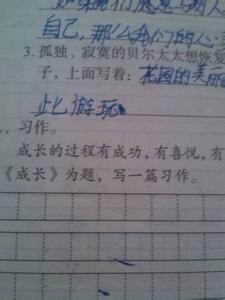 自己,那么我们的人
3. 孤独、寂寞的贝尔太太想恢复
子,上面写着:花园的美丽
此游玩
、习作。
成长的过程有成功,有喜悦,有
《成长》为题,写一篇习作。